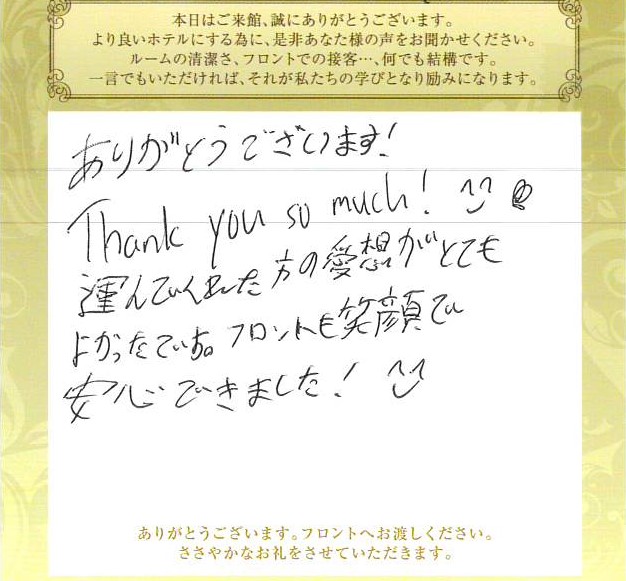 本日はご来館、誠にありがとうございます。
より良いホテルにする為に、是非あなた様の声をお聞かせください。
ルームの清潔さ、フロントでの接客…、何でも結構です。
一言でもいただければ、それが私たちの学びとなり励みになります。
ありがとうございます!
Thank you so much!
運んでくれた方の愛想がとても
よかったです。フロントも笑顔で
安心できました!
ありがとうございます。フロントへお渡しください。
ささやかなお礼をさせていただきます。